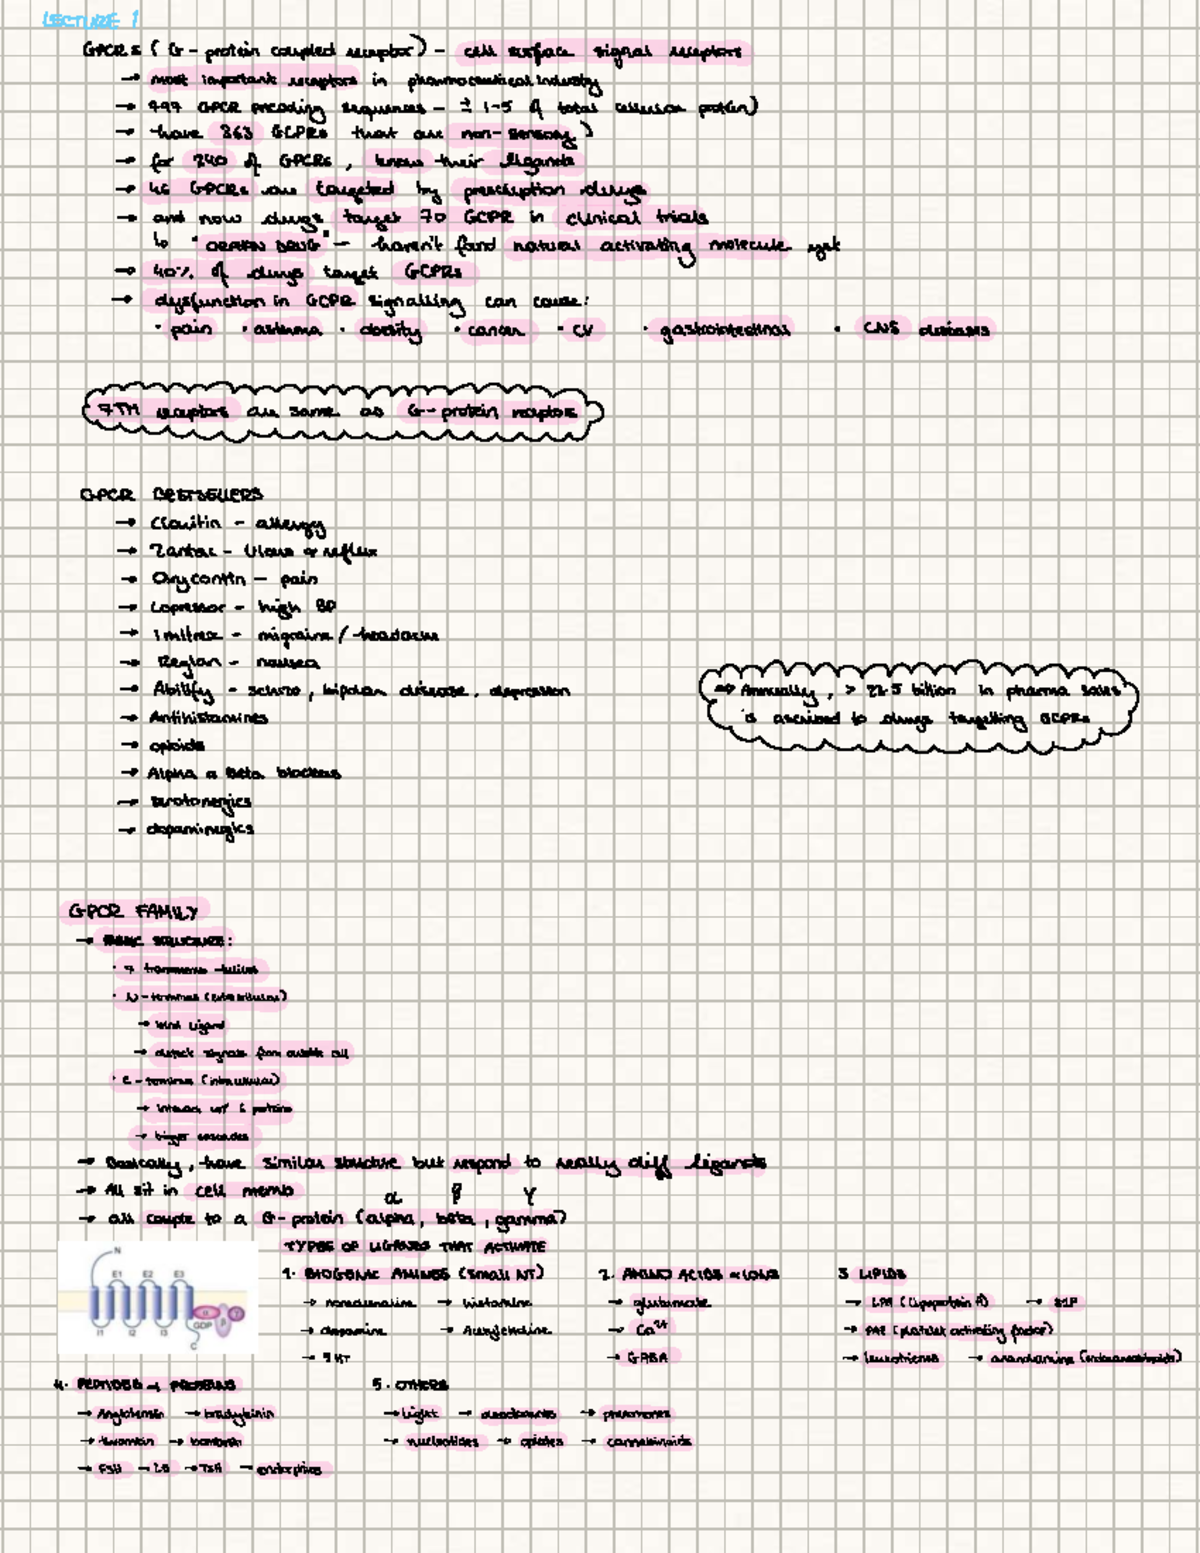 LECTURE 1
GPCRs (G-protein coupled receptor) - cell surface signal receptors
→ most important receptors in pharmaceutical industry
→ 799 GPCR encoding sequences - ± 1-5 % of total cellular protein)
→ have 363 GCPRs that are non-sensory)
→ for 240 of GPCRs, know their ligands
→ 46 GPCRs are targeted by prescription drugs
→ and now drugs target 70 GCPR in clinical trials
↳ "ORPHAN DRUG" - haven't found natural activating molecule yet
→ 40% of drugs target GCPRs
→ dysfunction in GCPR signalling can cause:
· pain · asthma · obesity · cancer · CV · gastrointestinal · CNS diseases
7TM receptors are same as G-protein receptors
GPCR BESTSELLERS
→ Claritin - allergy
→ Zantac - Ulcers & reflux
→ Oxycontin - pain
→ Lopressor - high BP
→ Imitrex - migraine / headache
→ Reglan - nausea
→ Abilify - schizo, bipolar disease, depression
⇒ Annually, > 22.5 billion in pharma sales
is ascribed to drugs targetting GCPRs
→ Antihistamines
→ opioids
→ Alpha & Beta blockers
→ serotonergics
→ dopaminegics
GPCR FAMILY
→ BASIC STRUCTURE:
· 7 transmem helices
· N-terminus (extracellular)
→ bind ligand
→ detect signals from outside cell
· C-terminus (intracellular)
→ interact w/ G proteins
→ trigger cascades
→ Basically, have similar structure but respond to really diff ligands
→ All sit in cell memb
α β γ
→ all couple to a G-protein (alpha, beta, gamma)
TYPES OF LIGANDS THAT ACTIVATE
N
E1 E2 E3
I1 I2 I3
GDP
α β γ
C
1. BIOGENIC AMINES (small NT) 2. AMINO ACIDS & IONS 3 LIPIDS
→ noradrenaline → histamine → glutamate → LPA (lipoprotein A) → S1P
→ dopamine → Acetylcholine → Ca2+ → PAF (platelet activating factor)
→ 5HT → GABA → leukotrienes → anandamine (endocannabinoids)
4. PEPTIDES & PROTEINS 5. OTHERS
→ Angiotensin → bradykinin → Light → odourants → pheromones
→ thrombin → bombesin → nucleotides → opiates → cannabinoids
→ FSH → LH → TSH → endorphins